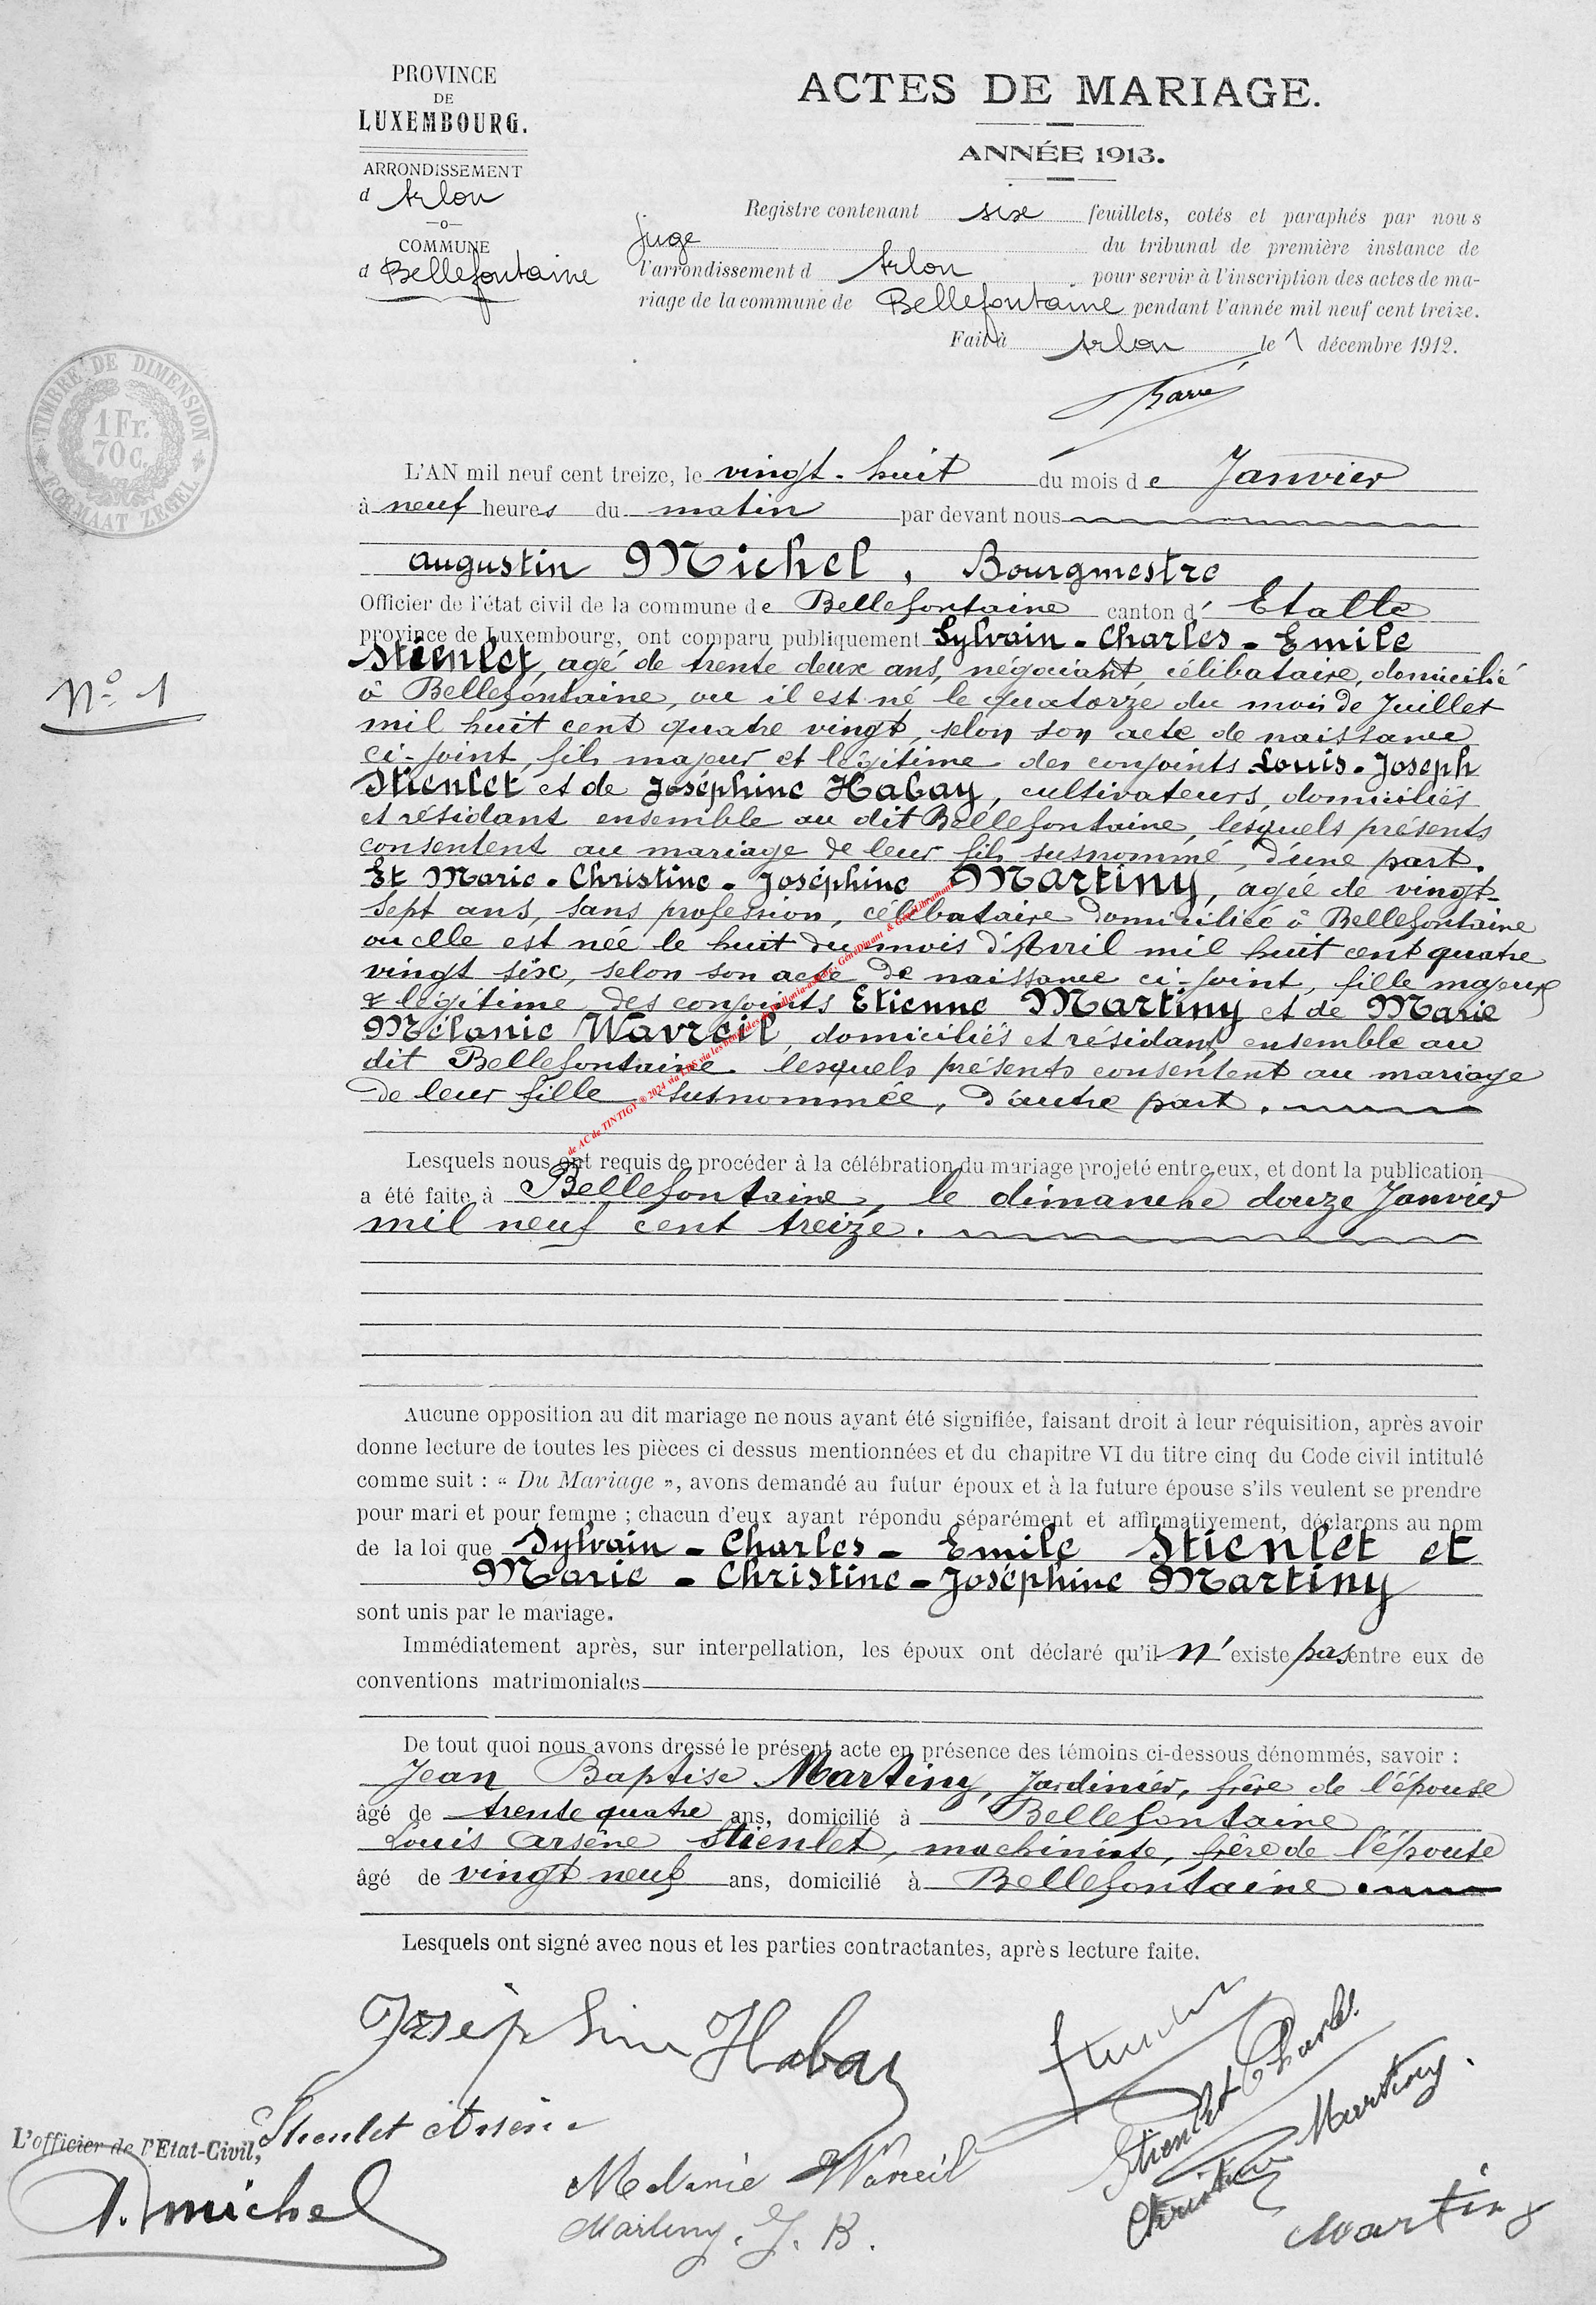 PROVINCE
DE
LUXEMBOURG.
ARRONDISSEMENT
d Arlon
—o—
COMMUNE
d Bellefontaine
ACTES DE MARIAGE.
ANNÉE 1913.
Registre contenant six feuillets, cotés et paraphés par nous
juge du tribunal de première instance de
l'arrondissement d Arlon pour servir à l'inscription des actes de ma-
riage de la commune de Bellefontaine pendant l'année mil neuf cent treize.
Fait à Arlon le 1 décembre 1912.
TIMBRE DE DIMENSION
1 Fr.
70 c.
FORMAAT ZEGEL
L'AN mil neuf cent treize, le vingt-huit du mois de Janvier
à neuf heures du matin par devant nous
Augustin Michel, Bourgmestre
Officier de l'état civil de la commune de Bellefontaine canton d' Etalle
province de Luxembourg, ont comparu publiquement Sylvain-Charles-Emile
N° 1
Stienlet, agé de trente deux ans, négociant, célibataire, domicilié
à Bellefontaine, ou il est né le quatorze du mois de Juillet
mil huit cent quatre vingt, selon son acte de naissance
ci-joint, fils majeur et légitime des conjoints Louis-Joseph
Stienlet et de Joséphine Habay, cultivateurs, domiciliés
et résidant ensemble au dit Bellefontaine, lesquels présents
consentent au mariage de leur fils susnommé, d'une part.
Et Marie-Christine-Joséphine Martiny, agée de vingt-
sept ans, sans profession, célibataire domiciliée à Bellefontaine
ou elle est née le huit du mois d'Avril mil huit cent quatre
vingt six, selon son acte de naissance ci-joint, fille majeure
& légitime des conjoints Etienne Martiny et de Marie
Mélanie Wavreil, domiciliés et résidant ensemble au
dit Bellefontaine. lesquels présents consentent au mariage
de leur fille susnommée, d'autre part.
de AC de TINTIGY ® 2024 via LDS via les bénévoles de wallonia-asbl.be : GénéDinant & GénéLibramont
Lesquels nous ont requis de procéder à la célébration du mariage projeté entre eux, et dont la publication
a été faite à Bellefontaine, le dimanche douze Janvier
mil neuf cent treize.
Aucune opposition au dit mariage ne nous ayant été signifiée, faisant droit à leur réquisition, après avoir
donne lecture de toutes les pièces ci dessus mentionnées et du chapitre VI du titre cinq du Code civil intitulé
comme suit : « Du Mariage », avons demandé au futur époux et à la future épouse s'ils veulent se prendre
pour mari et pour femme ; chacun d'eux ayant répondu séparément et affirmativement, déclarons au nom
de la loi que Sylvain-Charles-Emile Stienlet et
Marie-Christine-Joséphine Martiny
sont unis par le mariage.
Immédiatement après, sur interpellation, les époux ont déclaré qu'il n'existe pas entre eux de
conventions matrimoniales
De tout quoi nous avons dressé le présent acte en présence des témoins ci-dessous dénommés, savoir :
Jean Baptise Martiny, Jardinier, frère de l'épouse
âgé de trente quatre ans, domicilié à Bellefontaine
Louis Arsène Stienlet, machiniste, frère de l'épouse
âgé de vingt neuf ans, domicilié à Bellefontaine.
Lesquels ont signé avec nous et les parties contractantes, après lecture faite.
Joséphine Habay
Stienlet Charles
Christine Martiny.
Stienlet Arsène
L'officier de l'Etat-Civil,
A. Michel
Mélanie Wavreil
Martiny. J. B.
Martiny